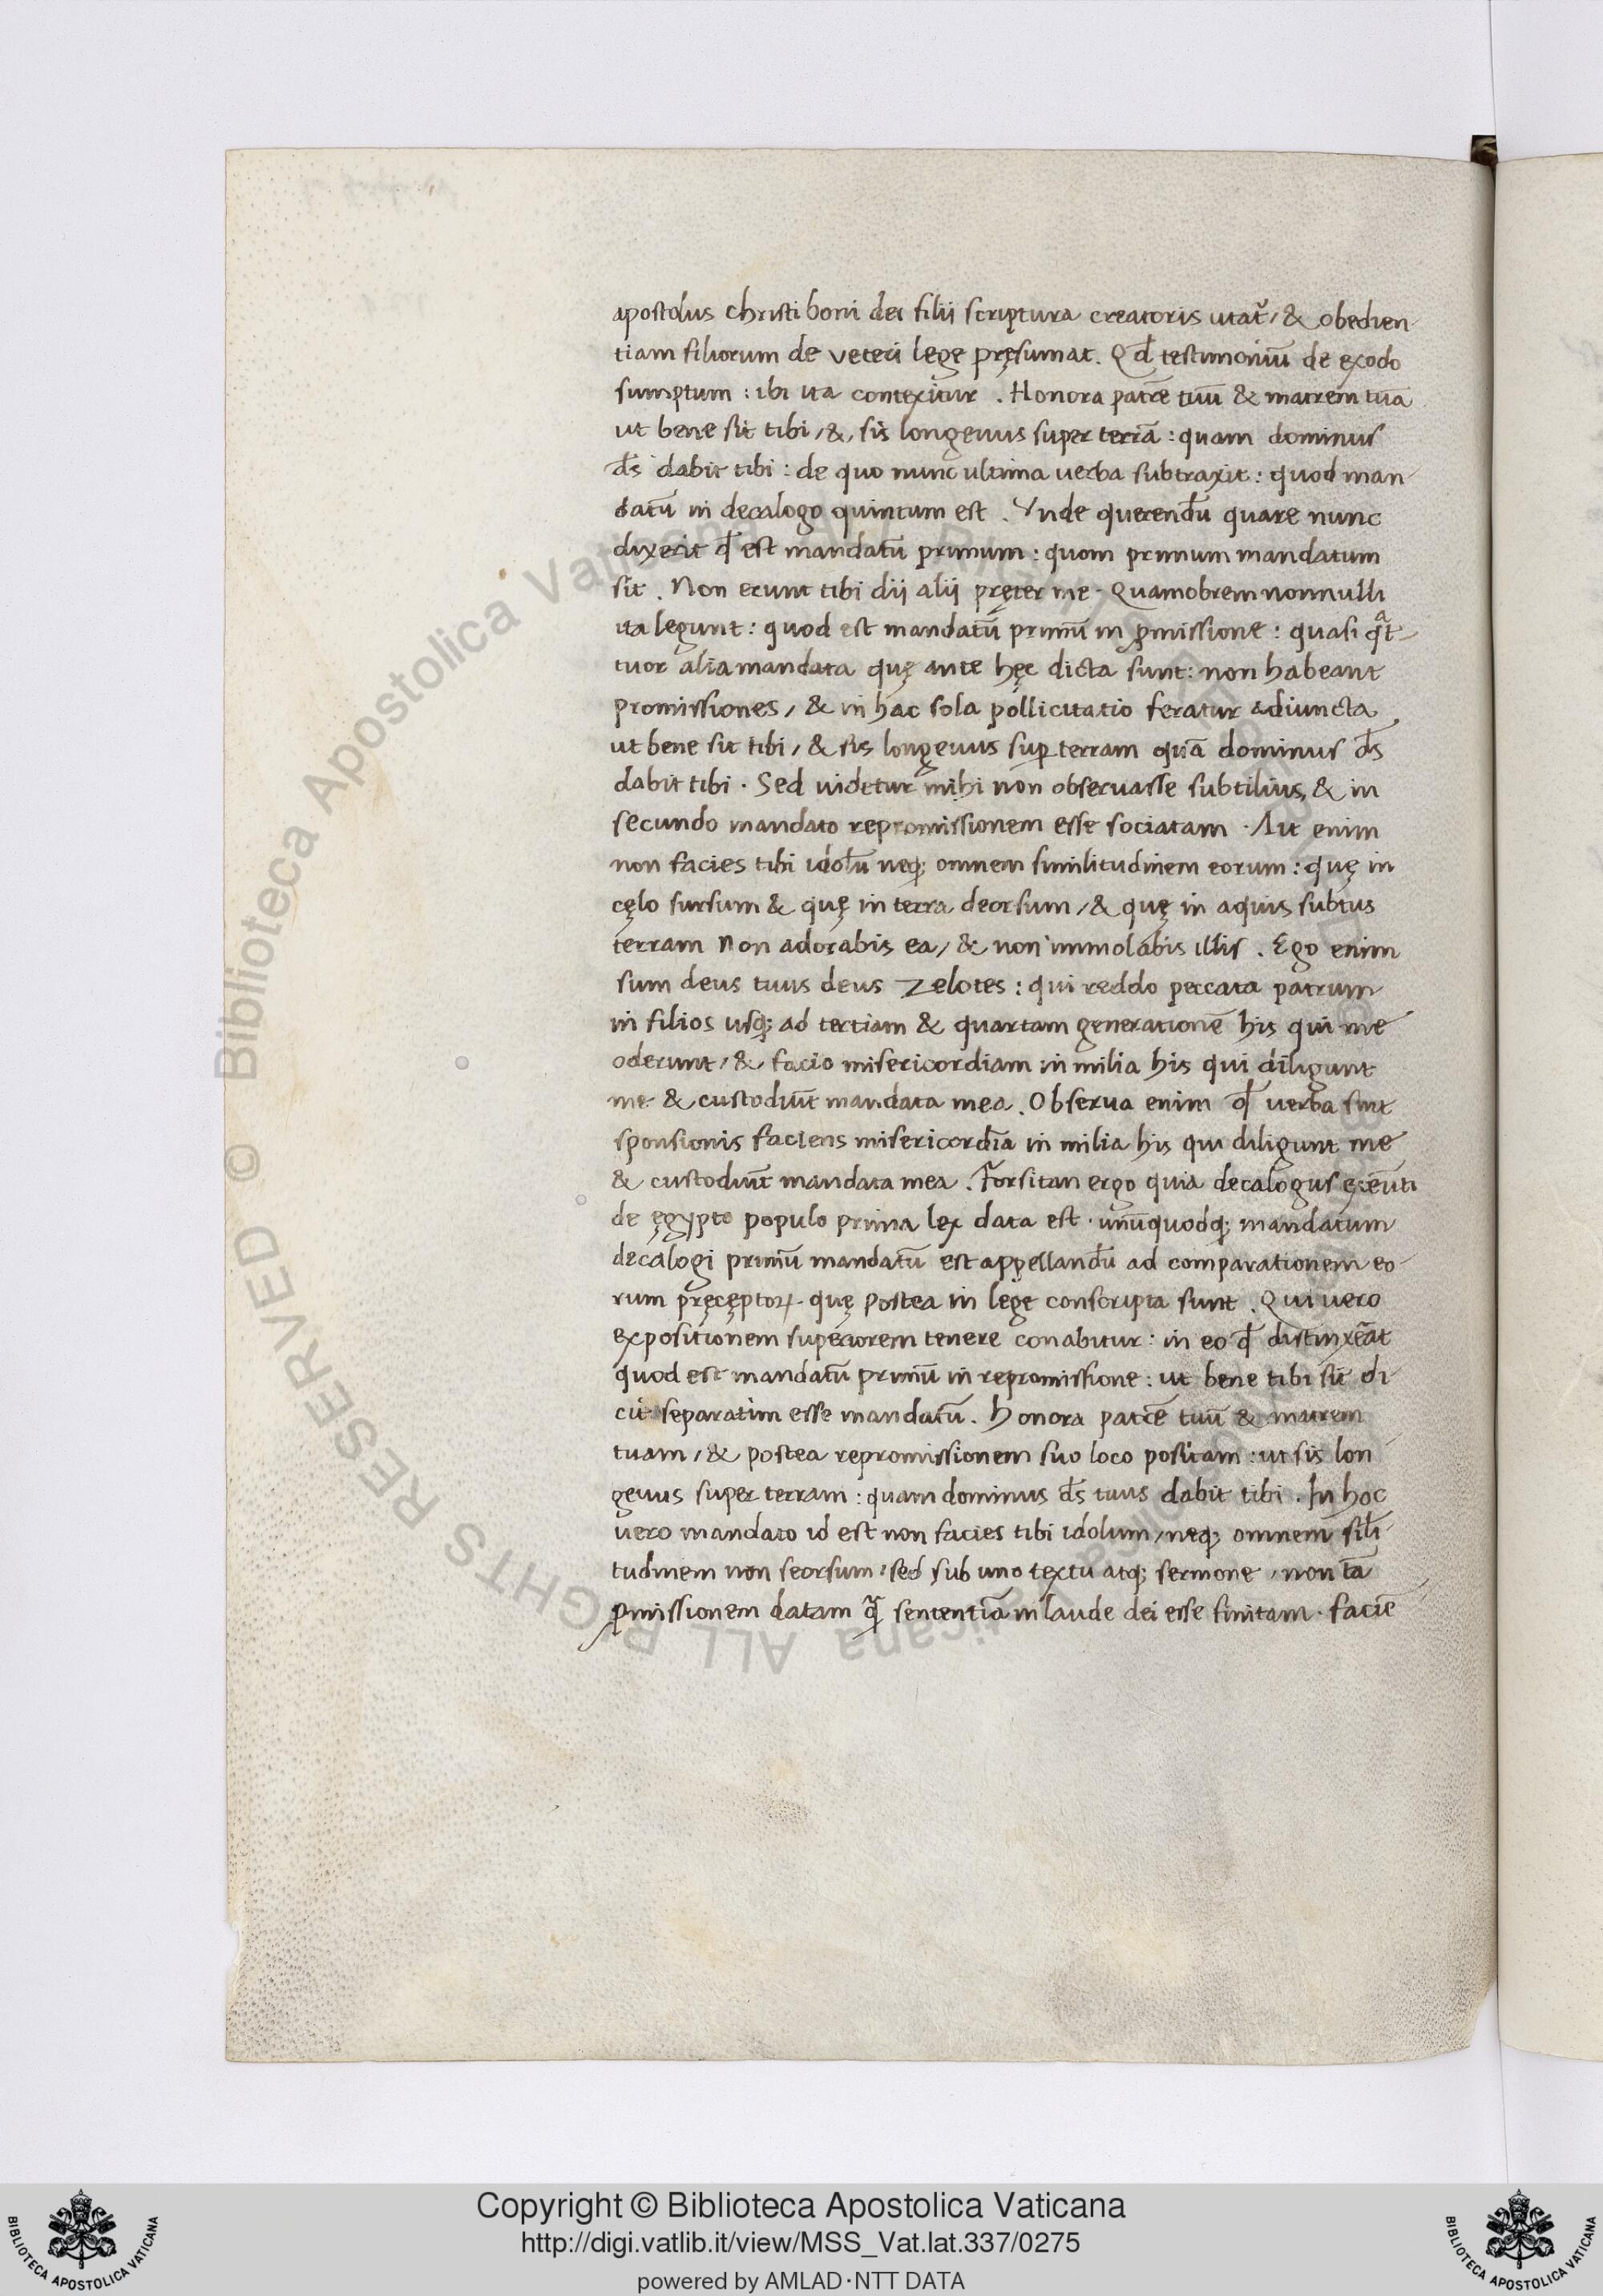 apostolus christi boni dei filii scriptura creatoris utat᷑ / & obedien-
tiam filiorum de veteri lege pręsumat. Qđ testimoniū de exodo
sumptum : ibi ita contexitur . Honora patrē tuū & matrem tuā
ut bene sit tibi / & sis longeuus super terrā : quam dominus
d̄s dabit tibi : de quo nunc ultima verba subtraxit : quod man-
datū in decalogo quintum est . Vnde querendū quare nunc
dixerit qđ est mandatū primum : quom primum mandatum
sit . Non erunt tibi dii alii pręter me . Quamobrem nonnulli
ita legunt : quod est mandatū primū in ꝓmissione : quasi qᵃt-
tuor alia mandata quę ante hęc dicta sunt : non habeant
promissiones / & in hac sola pollicitatio feratur adiuncta
ut bene sit tibi / & sis longeuus suꝑ terram quā dominus d̄s
dabit tibi . Sed uidetur mihi non obseruasse subtilius, & in
secundo mandato repromissionem esse sociatam . Ait enim
non facies tibi idolū neqꝫ omnem similitudinem eorum : quę in
cęlo sursum & quę in terra deorsum / & quę in aquis subtus
terram Non adorabis ea / & non immolabis illis . Ego enim
sum deus tuus deus zelotes : qui reddo peccata patrum
in filios usqꝫ ad tertiam & quartam generationē his qui me
oderunt / & facio misericordiam in milia his qui diligunt
me & custodiūt mandata mea . Obserua enim qđ verba sint
sponsionis faciens misericordiā in milia his qui diligunt me
& custodiūt mandata mea . Forsitan ergo quia decalogus exeūti
de ęgypto populo prima lex data est . unūquodqꝫ mandatum
decalogi primū mandatū est appellandū ad comparationem eo-
rum pręcęptoꝝ . quę postea in lege conscripta sunt . Qui vero
expositionem superiorem tenere conabitur : in eo qđ distinxēat
quod est mandatū primū in repromissione : ut bene tibi sit di-
cit separatim esse mandatū . Honora patrē tuū & matrem
tuam / & postea repromissionem suo loco positam : ut sis lon
geuus super terram : quam dominus d̄s tuus dabit tibi . In hoc
vero mandato id est non facies tibi idolum / neqꝫ omnem sīli-
tudinem non seorsum / sed sub uno textu atqꝫ sermone / non tā
ꝓmissionem datam qᵃꝫ sententiā in laude dei esse finitam . faciē
Copyright © Biblioteca Apostolica Vaticana
http://digi.vatlib.it/view/MSS_Vat.lat.337/0275
powered by AMLAD·NTT DATA
BIBLIOTECA APOSTOLICA VATICANA
BIBLIOTECA APOSTOLICA VATICANA
© Biblioteca Apostolica Vaticana ALL RIGHTS RESERVED